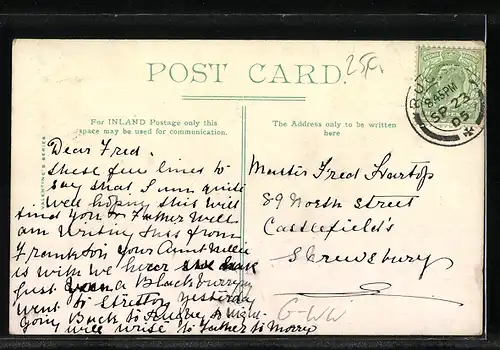 POST CARD.
25p
For INLAND Postage only this
space may be used for communication.
The Address only to be written
here
VALENTINE'S SERIES
8.45PM
SP 23
05
Dear Fred.
these few lines to
say that I am quite
well hoping this will
find you & Father Well
am Writing this from
your Aunt
is with me here
just a Blackburrying
went to Stretton yesterday
going Back to to night
I will write to Father to Morrow
Master Fred Hartop
89 North Street
Castlefield's
Shrewsbury
G-WW